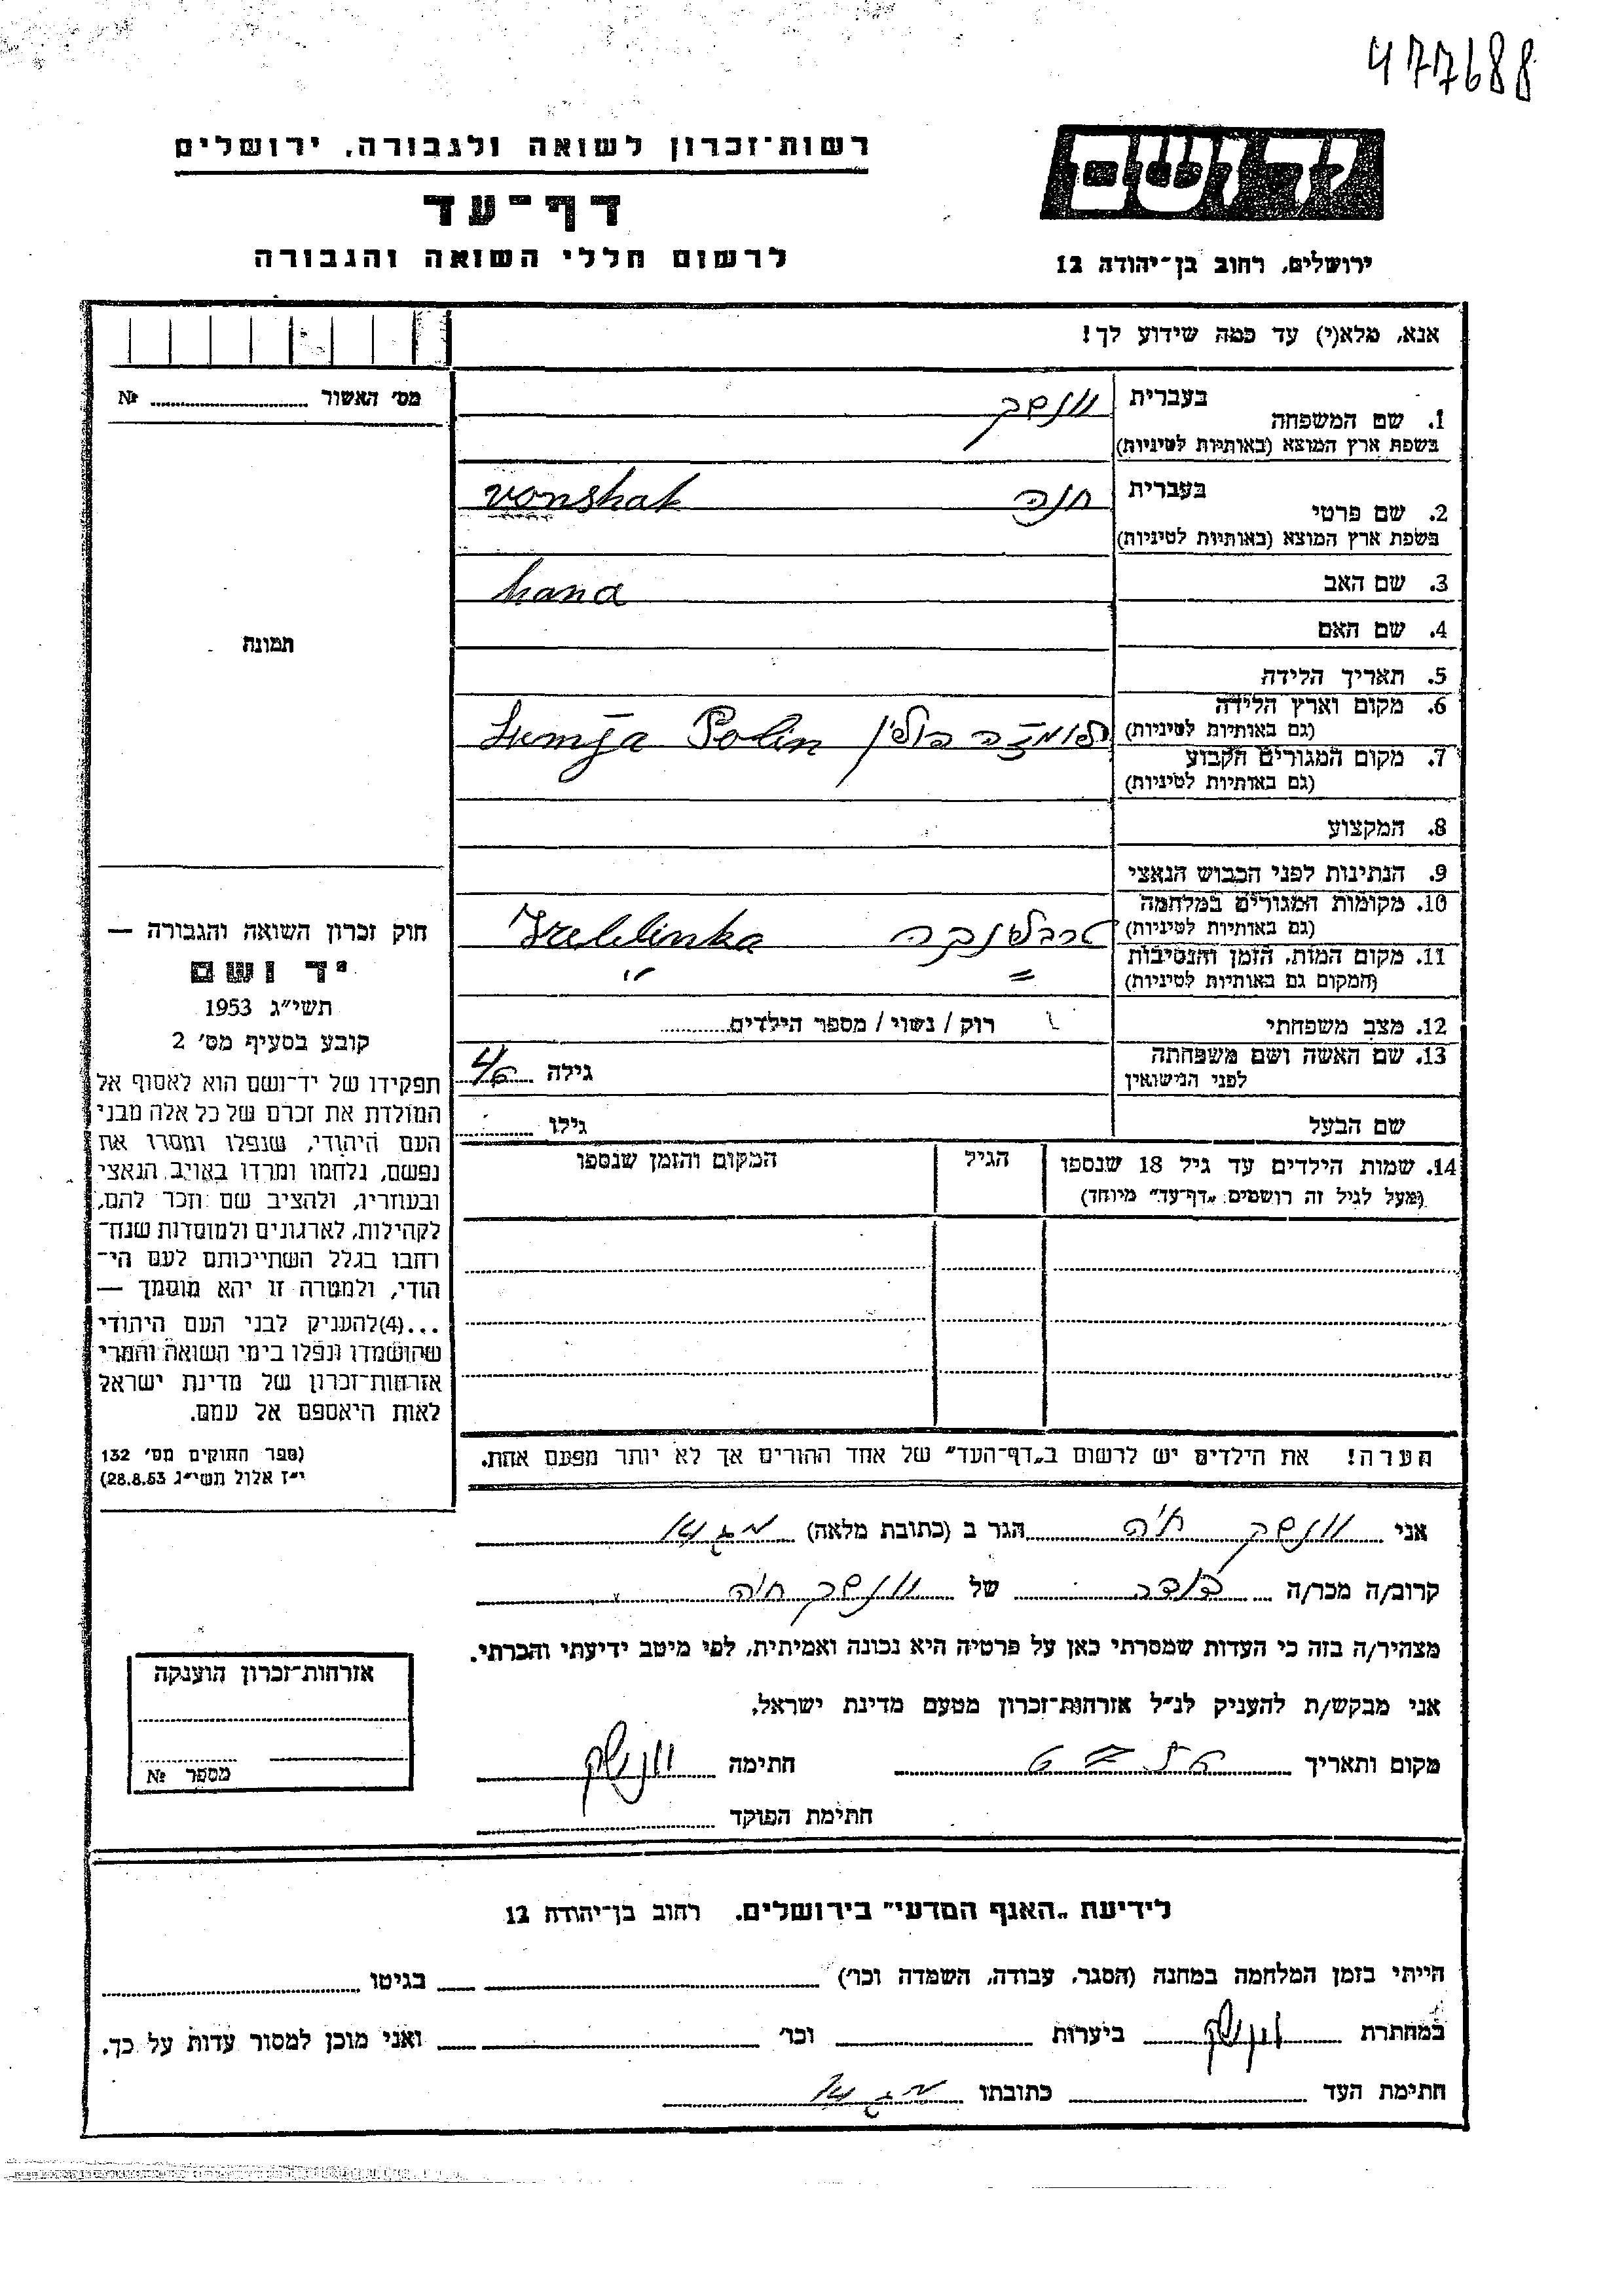 477688
יד ושם
רשות־זכרון לשואה ולגבורה, ירושלים
דף־עד
לרשום חללי השואה והגבורה
ירושלים, רחוב בן־יהודה 12
אנא, מלא(י) עד כמה שידוע לך!
מס׳ האשור ........ №
1. שם המשפחה בעברית ונשק
בשפת ארץ המוצא (באותיות לטיניות)
vonshak
2. שם פרטי בעברית חנה
בשפת ארץ המוצא (באותיות לטיניות)
hana
3. שם האב
4. שם האם
תמונה
5. תאריך הלידה
6. מקום וארץ הלידה
(גם באותיות לטיניות)
לומזה פולין Lumja Polin
7. מקום המגורים הקבוע
(גם באותיות לטיניות)
8. המקצוע
9. הנתינות לפני הכבוש הנאצי
10. מקומות המגורים במלחמה
(גם באותיות לטיניות)
טרבלינקה Treblinka
11. מקום המות, הזמן והנסיבות
(המקום גם באותיות לטיניות)
12. מצב משפחתי רוק / נשוי / מספר הילדים
13. שם האשה ושם משפחתה
לפני הנישואין
גילה
שם הבעל גילו
14. שמות הילדים עד גיל 18 שנספו הגיל המקום והזמן שנספו
(מעל לגיל זה רושמים „דף־עד״ מיוחד)
חוק זכרון השואה והגבורה —
יד ושם
תשי״ג 1953
קובע בסעיף מס׳ 2
תפקידו של יד־ושם הוא לאסוף אל
המולדת את זכרם של כל אלה מבני
העם היהודי, שנפלו ומסרו את
נפשם, נלחמו ומרדו באויב הנאצי
ובעוזריו, ולהציב שם וזכר להם,
לקהילות, לארגונים ולמוסדות שנח־
רחבו בגלל השתייכותם לעם הי־
הודי, ולמטרה זו יהא מוסמך —
...(4)להעניק לבני העם היהודי
שהושמדו ונפלו בימי השואה והמרי
אזרחות־זכרון של מדינת ישראל
לאות היאספם אל עמם.
(ספר החוקים מס׳ 132
י״ז אלול תשי״ג 28.8.53)
הערה! את הילדים יש לרשום ב„דף־העד״ של אחד ההורים אך לא יותר מפעם אחת.
אני ונשק חיה הגר ב (כתובת מלאה)
קרוב/ה מכר/ה דודה של ונשק חיה
מצהיר/ה בזה כי העדות שמסרתי כאן על פרטיה היא נכונה ואמיתית, לפי מיטב ידיעתי והכרתי.
אני מבקש/ת להעניק לנ״ל אזרחות־זכרון מטעם מדינת ישראל.
מקום ותאריך חתימה ונשק
חתימת הפוקד
אזרחות־זכרון הוענקה
מספר №
לידיעת „האגף המדעי״ בירושלים, רחוב בן־יהודה 12
הייתי בזמן המלחמה במחנה (הסגר, עבודה, השמדה וכו׳) בגיטו
במחתרת ונשק ביערות וכו׳ ואני מוכן למסור עדות על כך.
חתימת העד כתובתו